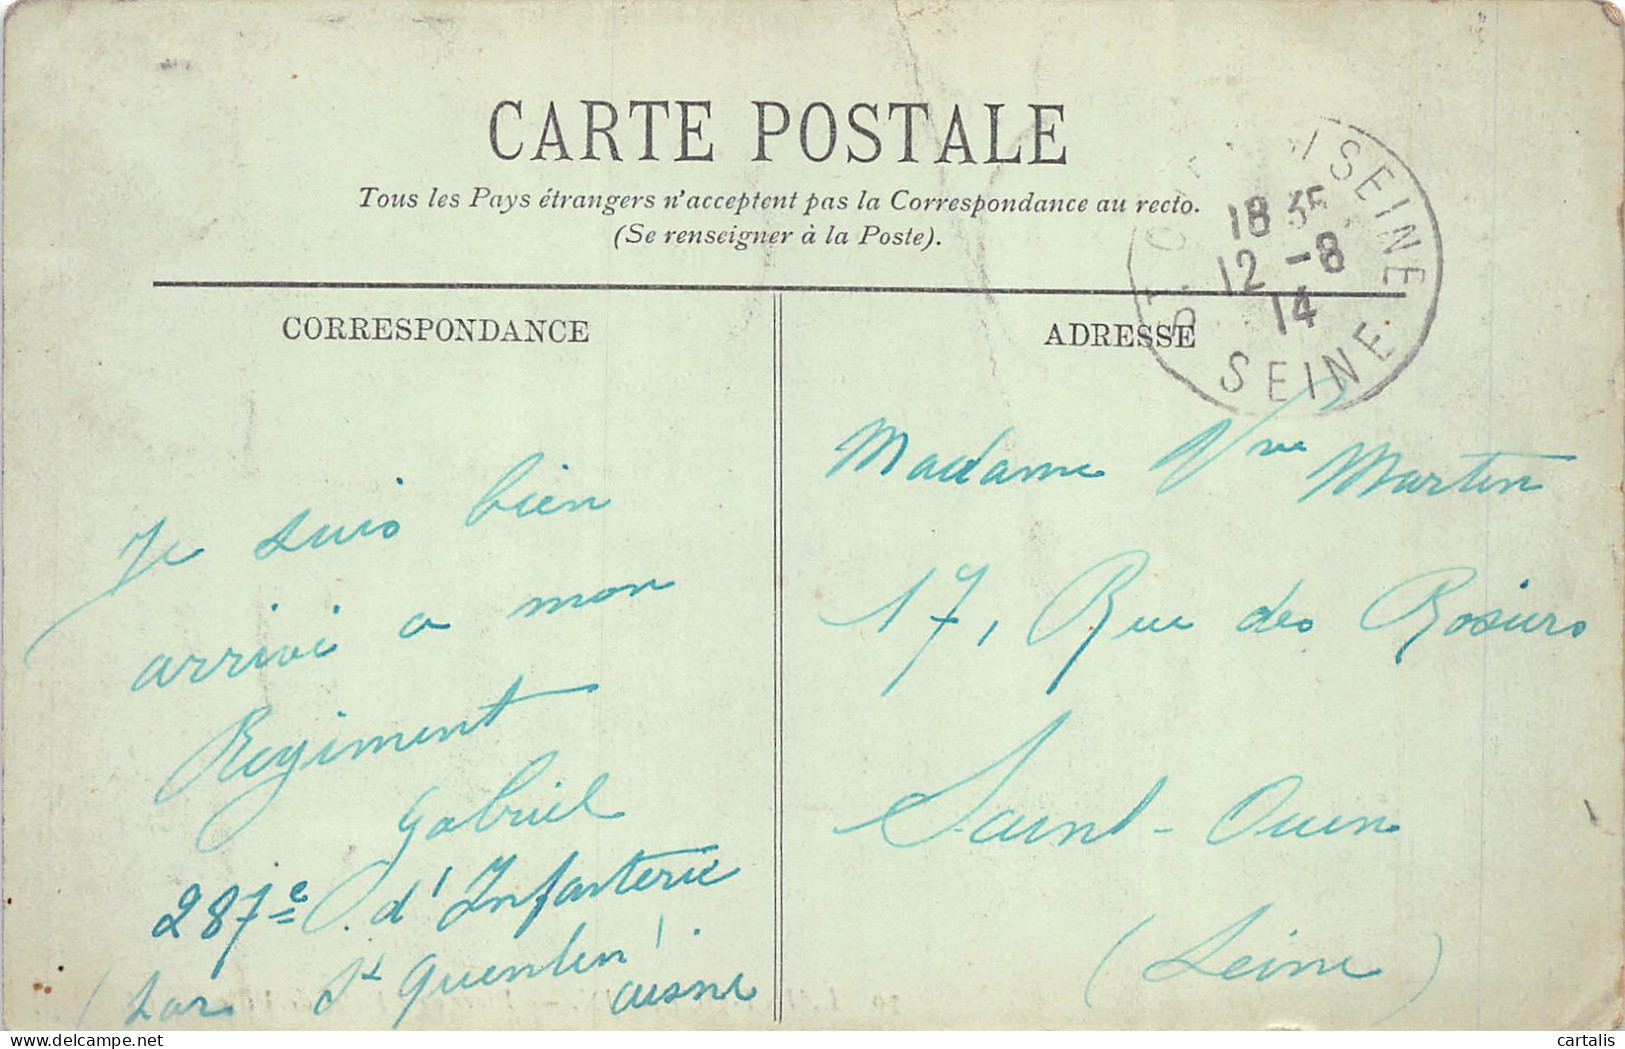 CARTE POSTALE
Tous les Pays étrangers n'acceptent pas la Correspondance au recto.
(Se renseigner à la Poste).
SEINE
18 35
12 -8
14
SEINE
CORRESPONDANCE
Je suis bien
arrivé a mon
Regiment
Gabriel
287e d'Infanterie
(par St Quentin
aisne
ADRESSE
Madame Vve Martin
17, Rue des Rosiers
Saint-Ouen
(Seine)
cartalis